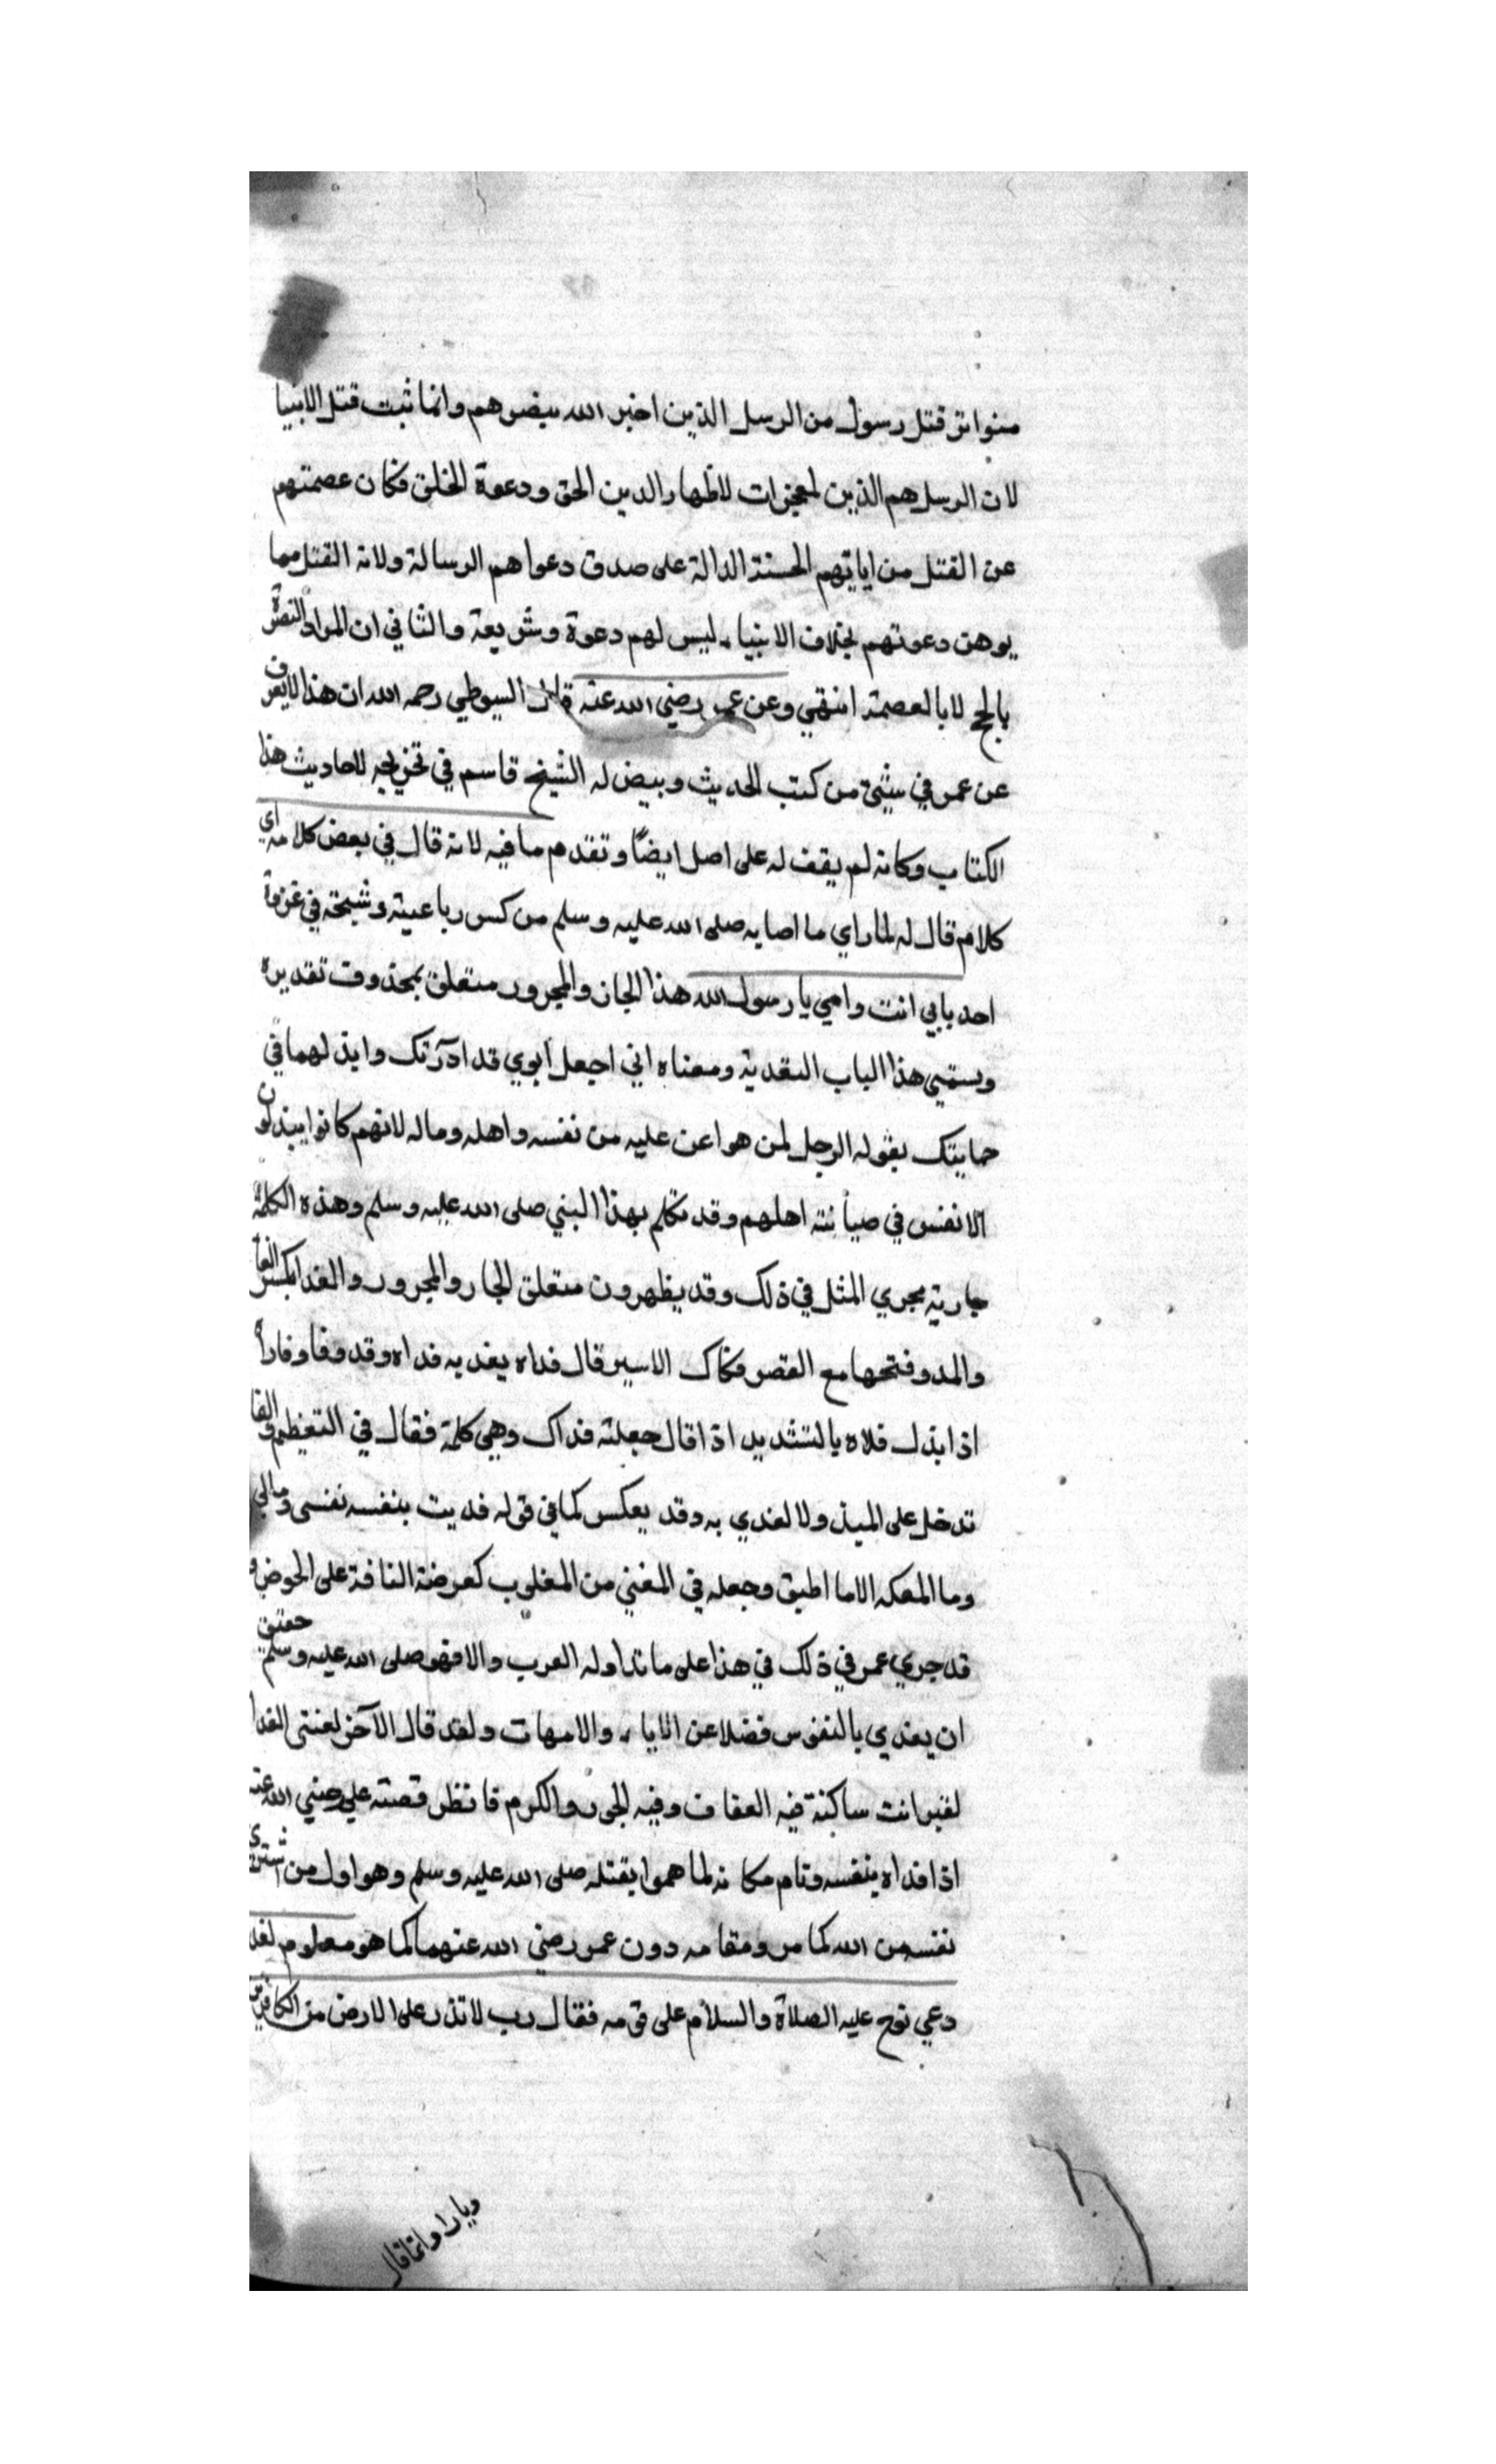 متواتر قتل رسول من الرسل الذين اخبر الله بنصرهم وانما ثبت قتل الانبيا
لان الرسل هم الذين لمعجزات لاظهار الدين الحق ودعوة الخلق فكان عصمتهم
عن القتل من اياتهم الحسنة الدالة على صدق دعواهم الرسالة ولانه القتل مما
يوهن دعوتهم بخلاف الانبياء ليس لهم دعوة وشريعة والثاني ان المراد النصرة
بالحج لا بالعصمة انتهي وعن عمر رضي الله عنه قال السيوطي رحمه الله ان هذا لا يعرف
عن عمر في شئ من كتب الحديث وبيض له الشيخ قاسم في تخريجه لاحاديث هذا
الكتاب وكانه لم يقف له على اصل ايضًا وتقدم ما فيه لانه قال في بعض كلامه اي
كلام قال له لما راي ما اصابه صلى الله عليه وسلم من كسر رباعيته وشجته في غزوة
احد بابي انت وامي يا رسول الله هذا الجار والمجرور متعلق بمحذوف تقديره
ويسمي هذا الباب التفدية ومعناه اني اجعل ابوي قد ادركك وابذلهما في
حمايتك يقوله الرجل لمن هو اعن عليه من نفسه واهله وماله لانهم كانوا يبذلون
الانفس في صيانته اهلهم وقد تكلم بهذا النبي صلى الله عليه وسلم وهذه الكلمة
جارية مجري المثل في ذلك وقد يظهرون متعلق الجار والمجرور والفدا بكسر الفا
والمد وفتحها مع القصر فكاك الاسير قال فداه يفديه فداه وقد وفا وفارا
اذا بذل فلاه بالتشديد اذا قال جعلته فداك وهي كلمة فقال في التعظيم والفا
تدخل على المبذولا لفدي به وقد يعكس كما في قوله فديت بنفسه نفسى ومالي
وما المعكه الاما اطيق وجعله في المغني من المغلوب كعرضة الناقة على الحوض و
قد جري عمر في ذلك في هذا على ما تداوله العرب والا فهو صلى الله عليه وسلم حقيق
ان يفدي بالنفوس فضلا عن الاباء والامهات ولقد قال الآخر لعنتى الفدا
لغير انت ساكنة فيه العفاف وفيه الجود والكرم فانظر قصته علي رضي الله عنه
اذا فداه بنفسه وقام مكانه لما هموا بقتله صلى الله عليه وسلم وهو اول من اشترى
نفسه من الله كما مر ومقامه دون عمر رضي الله عنهما كما هو معلوم لقد
دعي نوح عليه الصلاة والسلام على قومه فقال رب لا تذر على الارض من الكافرين
ديارا وانما قال